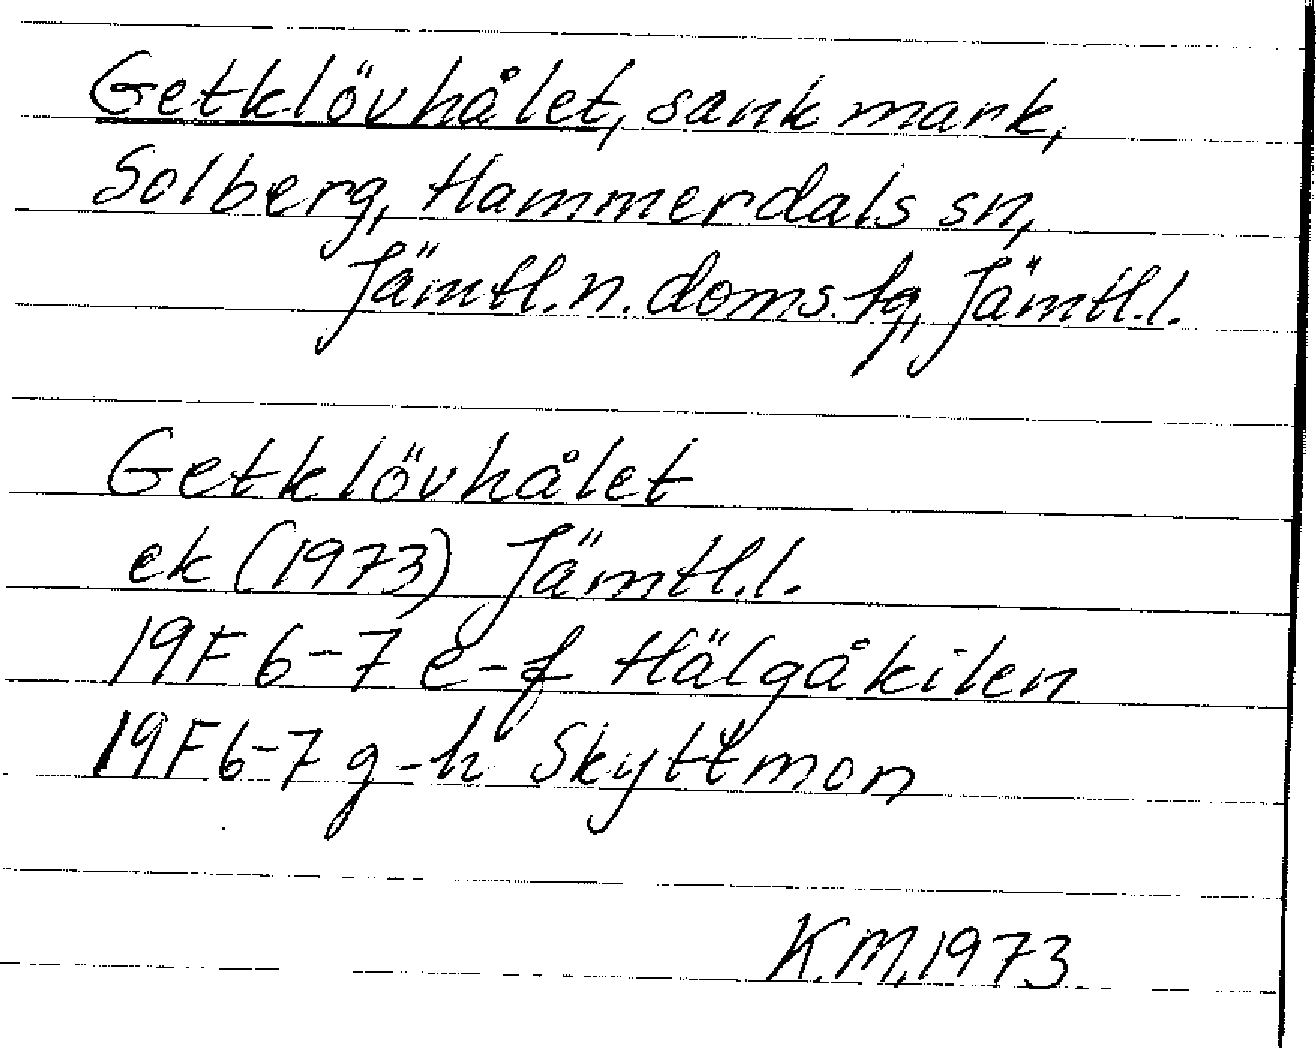 Getklövhålet, sank mark,
Solberg, Hammerdals sn,
Jämtl. n. doms. fg, Jämtl. l.
Getklövhålet
ek (1973) Jämtl. l.
19F 6-7 e-f Hälgåkilen
19F 6-7 g-h Skyttmon
K.M. 1973